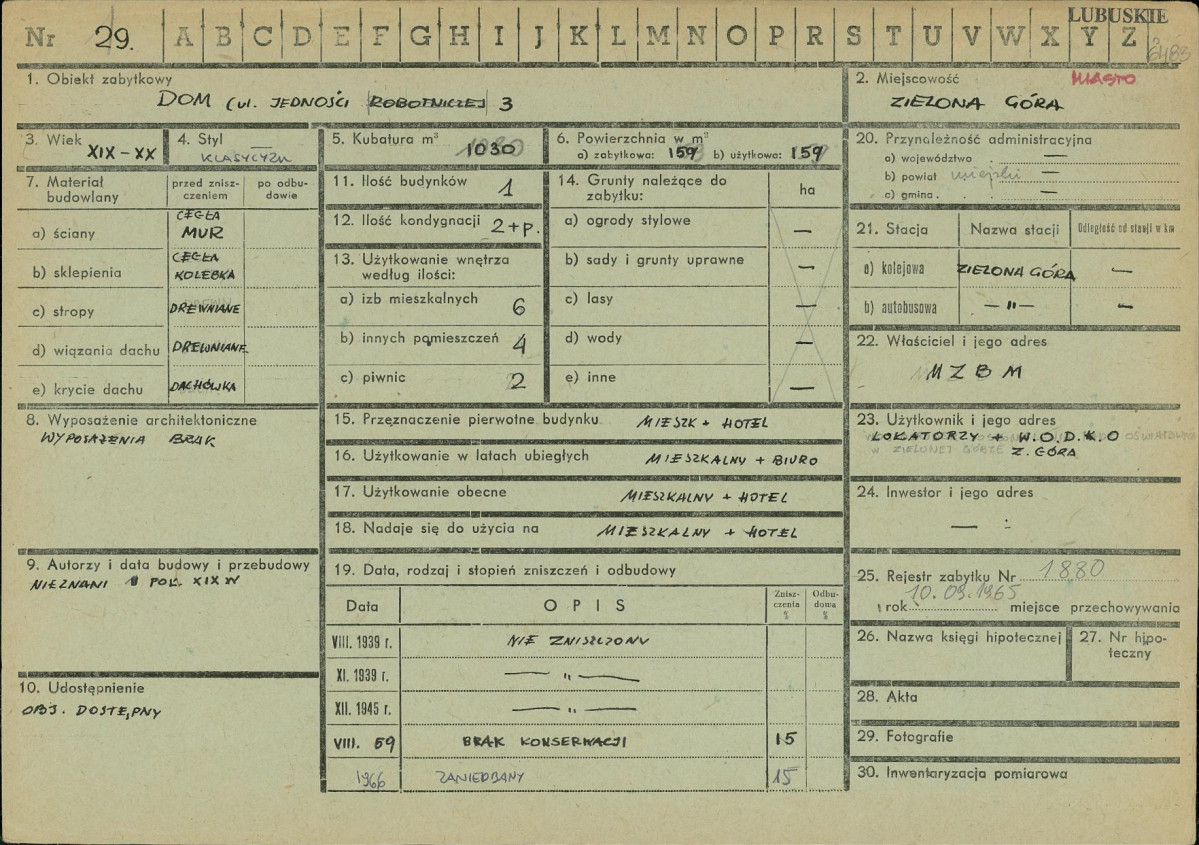 LUBUSKIE
Nr 29. A B C D E F G H I J K L M N O P R S T U V W X Y Z
1. Obiekt zabytkowy
DOM (ul. JEDNOŚCI ROBOTNICZEJ 3
2. Miejscowość MIASTO
ZIELONA GÓRA
3. Wiek XIX-XX
4. Styl
KLASYCYZM
5. Kubatura m³
1030
6. Powierzchnia w m²
a) zabytkowa: 159 b) użytkowa: 159
7. Materiał budowlany
przed zniszczeniem
po odbudowie
a) ściany CEGŁA MUR
b) sklepienia CEGŁA KOLEBKA
c) stropy DREWNIANE
d) wiązania dachu DREWNIANE
e) krycie dachu DACHÓWKA
8. Wyposażenie architektoniczne
WYPOSAŻENIA BRAK
9. Autorzy i data budowy i przebudowy
NIEZNANI POŁ. XIX W
10. Udostępnienie
OBJ. DOSTĘPNY
11. Ilość budynków 1
12. Ilość kondygnacji 2+p.
13. Użytkowanie wnętrza
według ilości:
a) izb mieszkalnych 6
b) innych pomieszczeń 4
c) piwnic 2
14. Grunty należące do
zabytku: ha
a) ogrody stylowe —
b) sady i grunty uprawne —
c) lasy —
d) wody —
e) inne —
15. Przeznaczenie pierwotne budynku MIESZK + HOTEL
16. Użytkowanie w latach ubiegłych MIESZKALNY + BIURO
17. Użytkowanie obecne MIESZKALNY + HOTEL
18. Nadaje się do użycia na MIESZKALNY + HOTEL
19. Data, rodzaj i stopień zniszczeń i odbudowy
Data OPIS Zniszczenia % Odbudowa %
VIII. 1939 r. NIE ZNISZCZONY
XI. 1939 r. — " —
XII. 1945 r. — " —
VIII. 59 BRAK KONSERWACJI 15
1966 ZANIEDBANY 15
20. Przynależność administracyjna
a) województwo —
b) powiat miejski —
c) gmina —
21. Stacja Nazwa stacji Odległość od stacji w km
a) kolejowa ZIELONA GÓRA —
b) autobusowa — " — —
22. Właściciel i jego adres
MZBM
23. Użytkownik i jego adres
LOKATORZY + W.O.D.K.O
Z. GÓRA
24. Inwestor i jego adres
—
25. Rejestr zabytku Nr 1880
rok 10.09.1965 miejsce przechowywania
26. Nazwa księgi hipotecznej
27. Nr hipoteczny
28. Akta
29. Fotografie
30. Inwentaryzacja pomiarowa